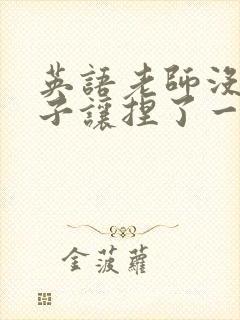 英語老師沒
子讓捏了一
金菠蘿